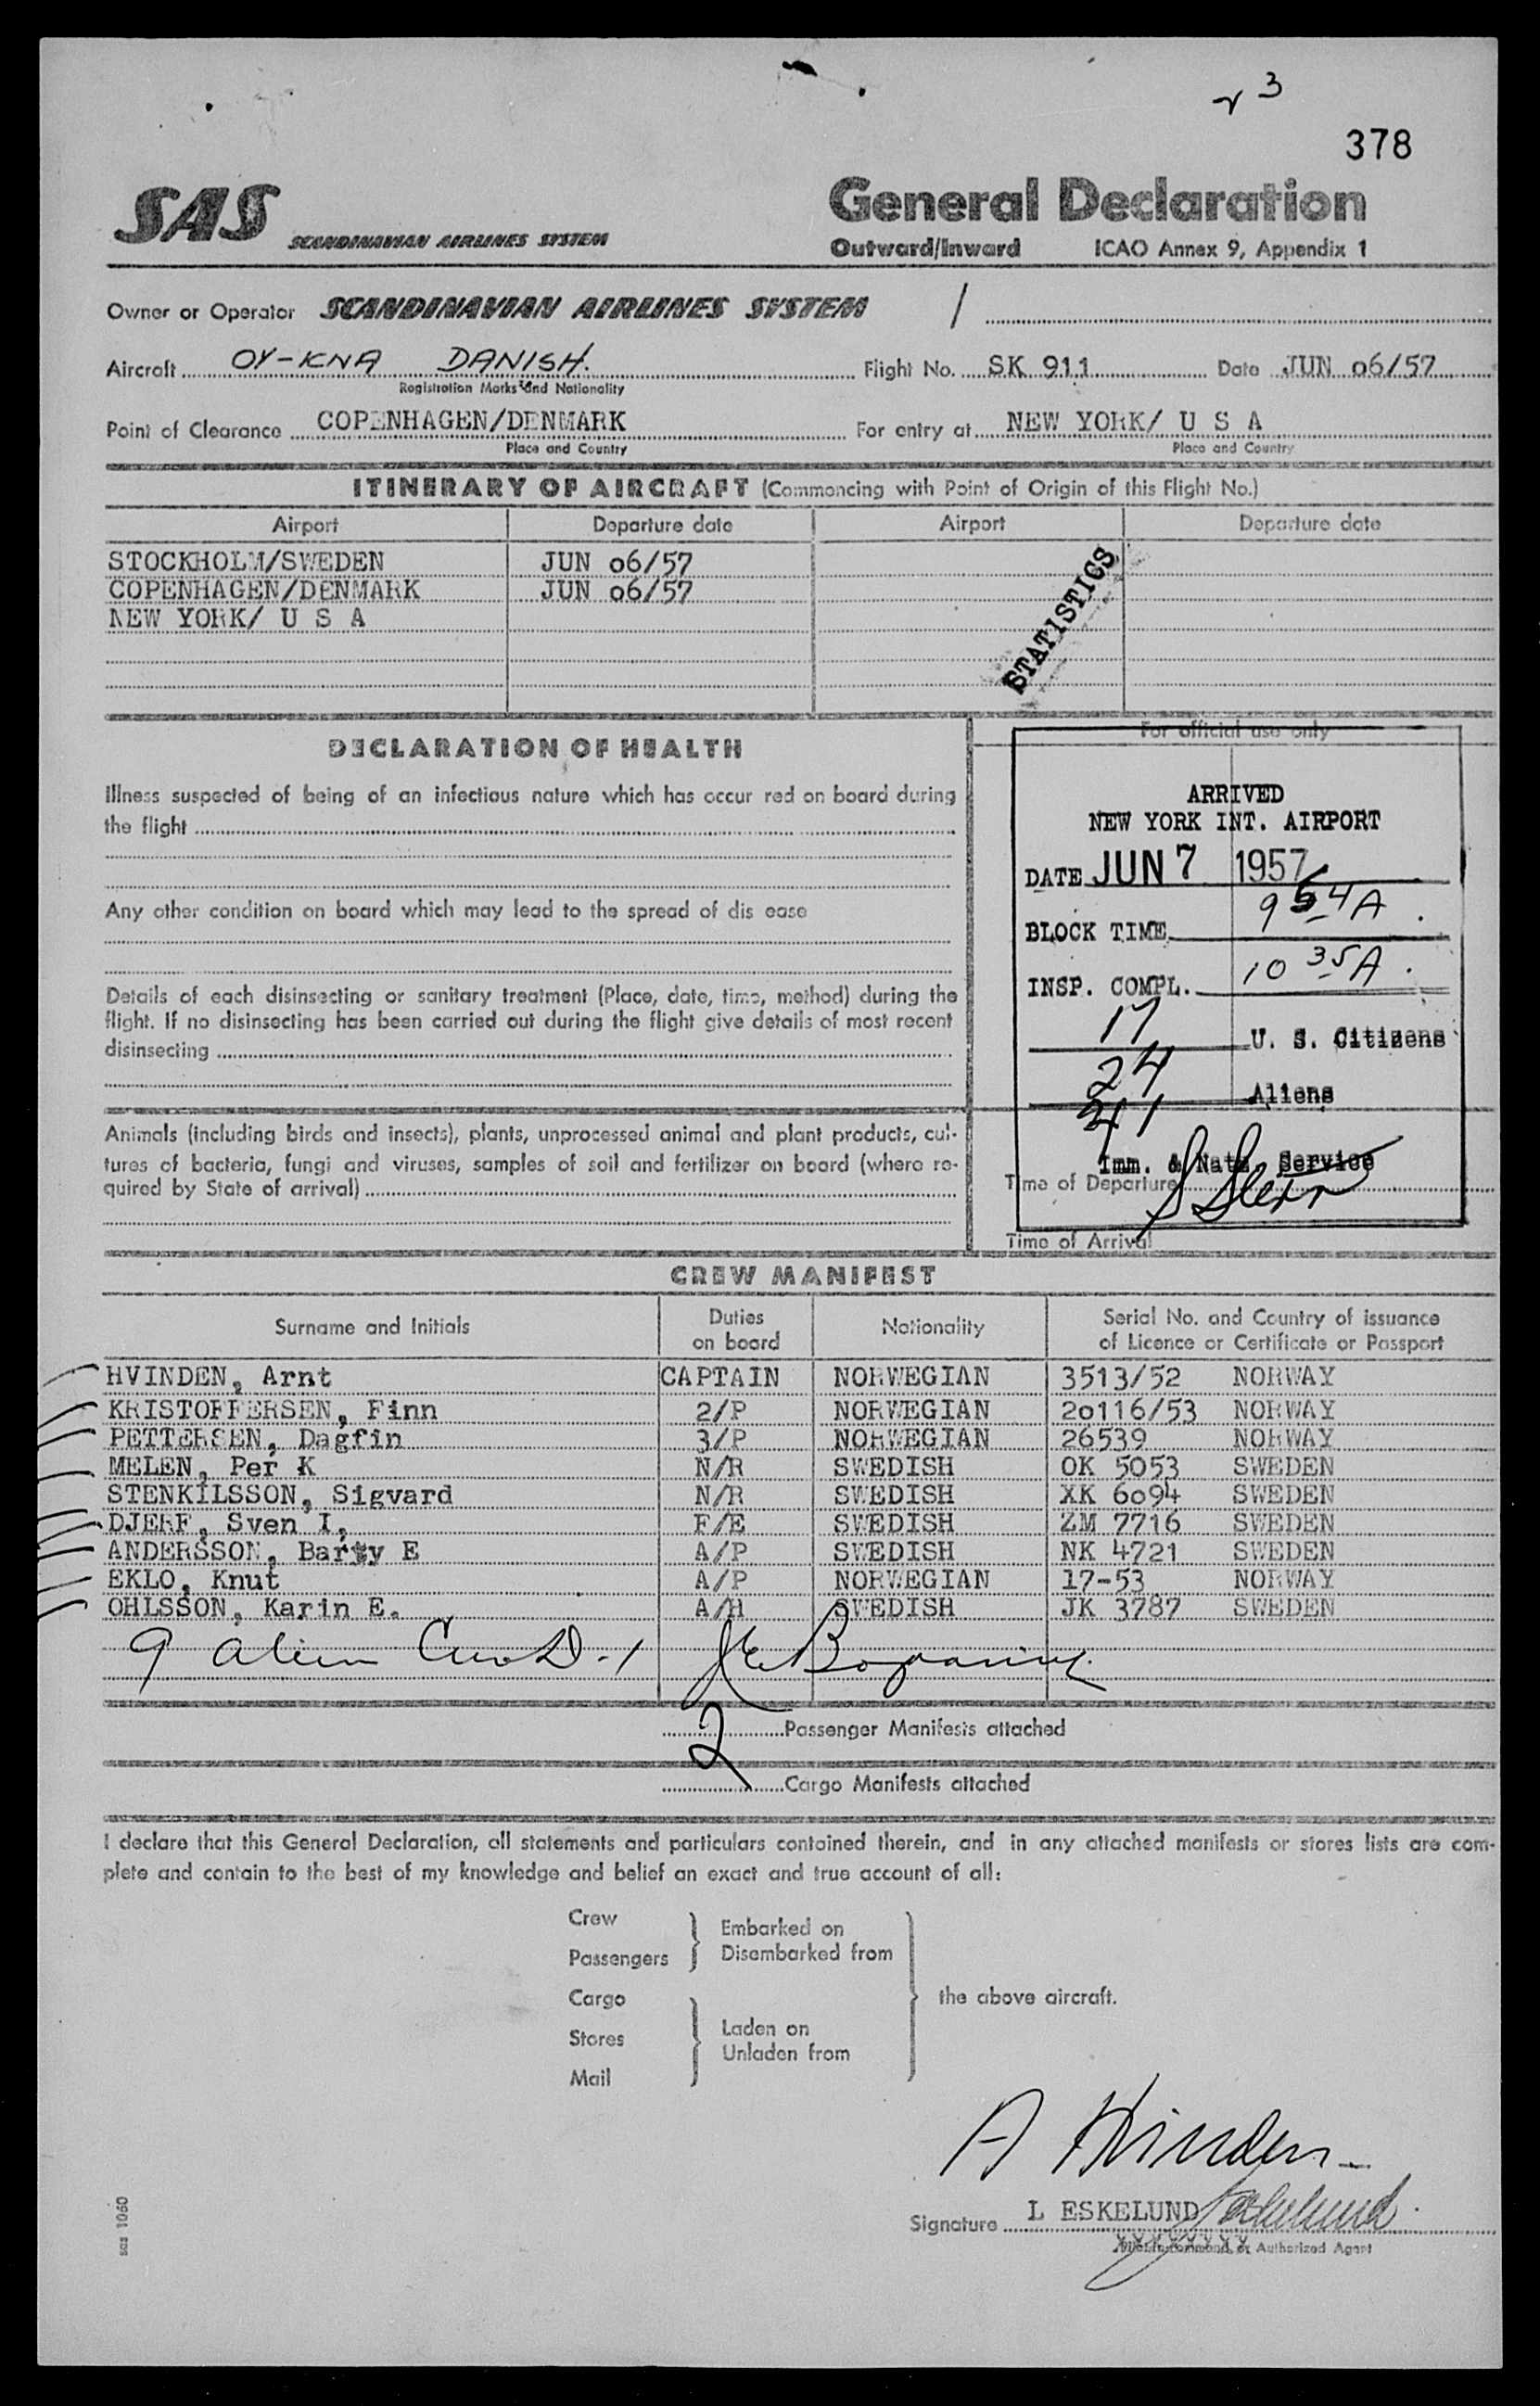 3
378
SAS SCANDINAVIAN AIRLINES SYSTEM
General Declaration
Outward/Inward ICAO Annex 9, Appendix 1
Owner or Operator SCANDINAVIAN AIRLINES SYSTEM /
Aircraft OY-KNA DANISH. Flight No. SK 911 Date JUN 06/57
Registration Marks and Nationality
Point of Clearance COPENHAGEN/DENMARK For entry at NEW YORK/ U S A
Place and Country Place and Country
ITINERARY OF AIRCRAFT (Commencing with Point of Origin of this Flight No.)
Airport Departure date Airport Departure date
STOCKHOLM/SWEDEN JUN 06/57
COPENHAGEN/DENMARK JUN 06/57
NEW YORK/ U S A
STATISTICS
DECLARATION OF HEALTH
Illness suspected of being of an infectious nature which has occur red on board during
the flight
Any other condition on board which may lead to the spread of dis ease
Details of each disinsecting or sanitary treatment (Place, date, time, method) during the
flight. If no disinsecting has been carried out during the flight give details of most recent
disinsecting
Animals (including birds and insects), plants, unprocessed animal and plant products, cul-
tures of bacteria, fungi and viruses, samples of soil and fertilizer on board (where re-
quired by State of arrival)
For official use only
ARRIVED
NEW YORK INT. AIRPORT
DATE JUN 7 1957
BLOCK TIME 9 54 A.
INSP. COMPL. 10 35 A.
17 U. S. Citizens
24 Aliens
41
Imm. & Natz. Service
Time of Departure
Time of Arrival
CREW MANIFEST
Surname and Initials Duties on board Nationality Serial No. and Country of issuance of Licence or Certificate or Passport
HVINDEN, Arnt CAPTAIN NORWEGIAN 3513/52 NORWAY
KRISTOFFERSEN, Finn 2/P NORWEGIAN 20116/53 NORWAY
PETTERSEN, Dagfin 3/P NORWEGIAN 26539 NORWAY
MELEN, Per K N/R SWEDISH OK 5053 SWEDEN
STENKILSSON, Sigvard N/R SWEDISH XK 6094 SWEDEN
DJERF, Sven I, F/E SWEDISH ZM 7716 SWEDEN
ANDERSSON, Barty E A/P SWEDISH NK 4721 SWEDEN
EKLO, Knut A/P NORWEGIAN 17-53 NORWAY
OHLSSON, Karin E. A/H SWEDISH JK 3787 SWEDEN
9 alien Crew D-1
2 Passenger Manifests attached
Cargo Manifests attached
I declare that this General Declaration, all statements and particulars contained therein, and in any attached manifests or stores lists are com-
plete and contain to the best of my knowledge and belief an exact and true account of all:
Crew
Passengers
Embarked on
Disembarked from
Cargo
Stores
Mail
Laden on
Unladen from
the above aircraft.
A Hvinden
Signature L ESKELUND
Pilot in command, or Authorized Agent
sas 1060